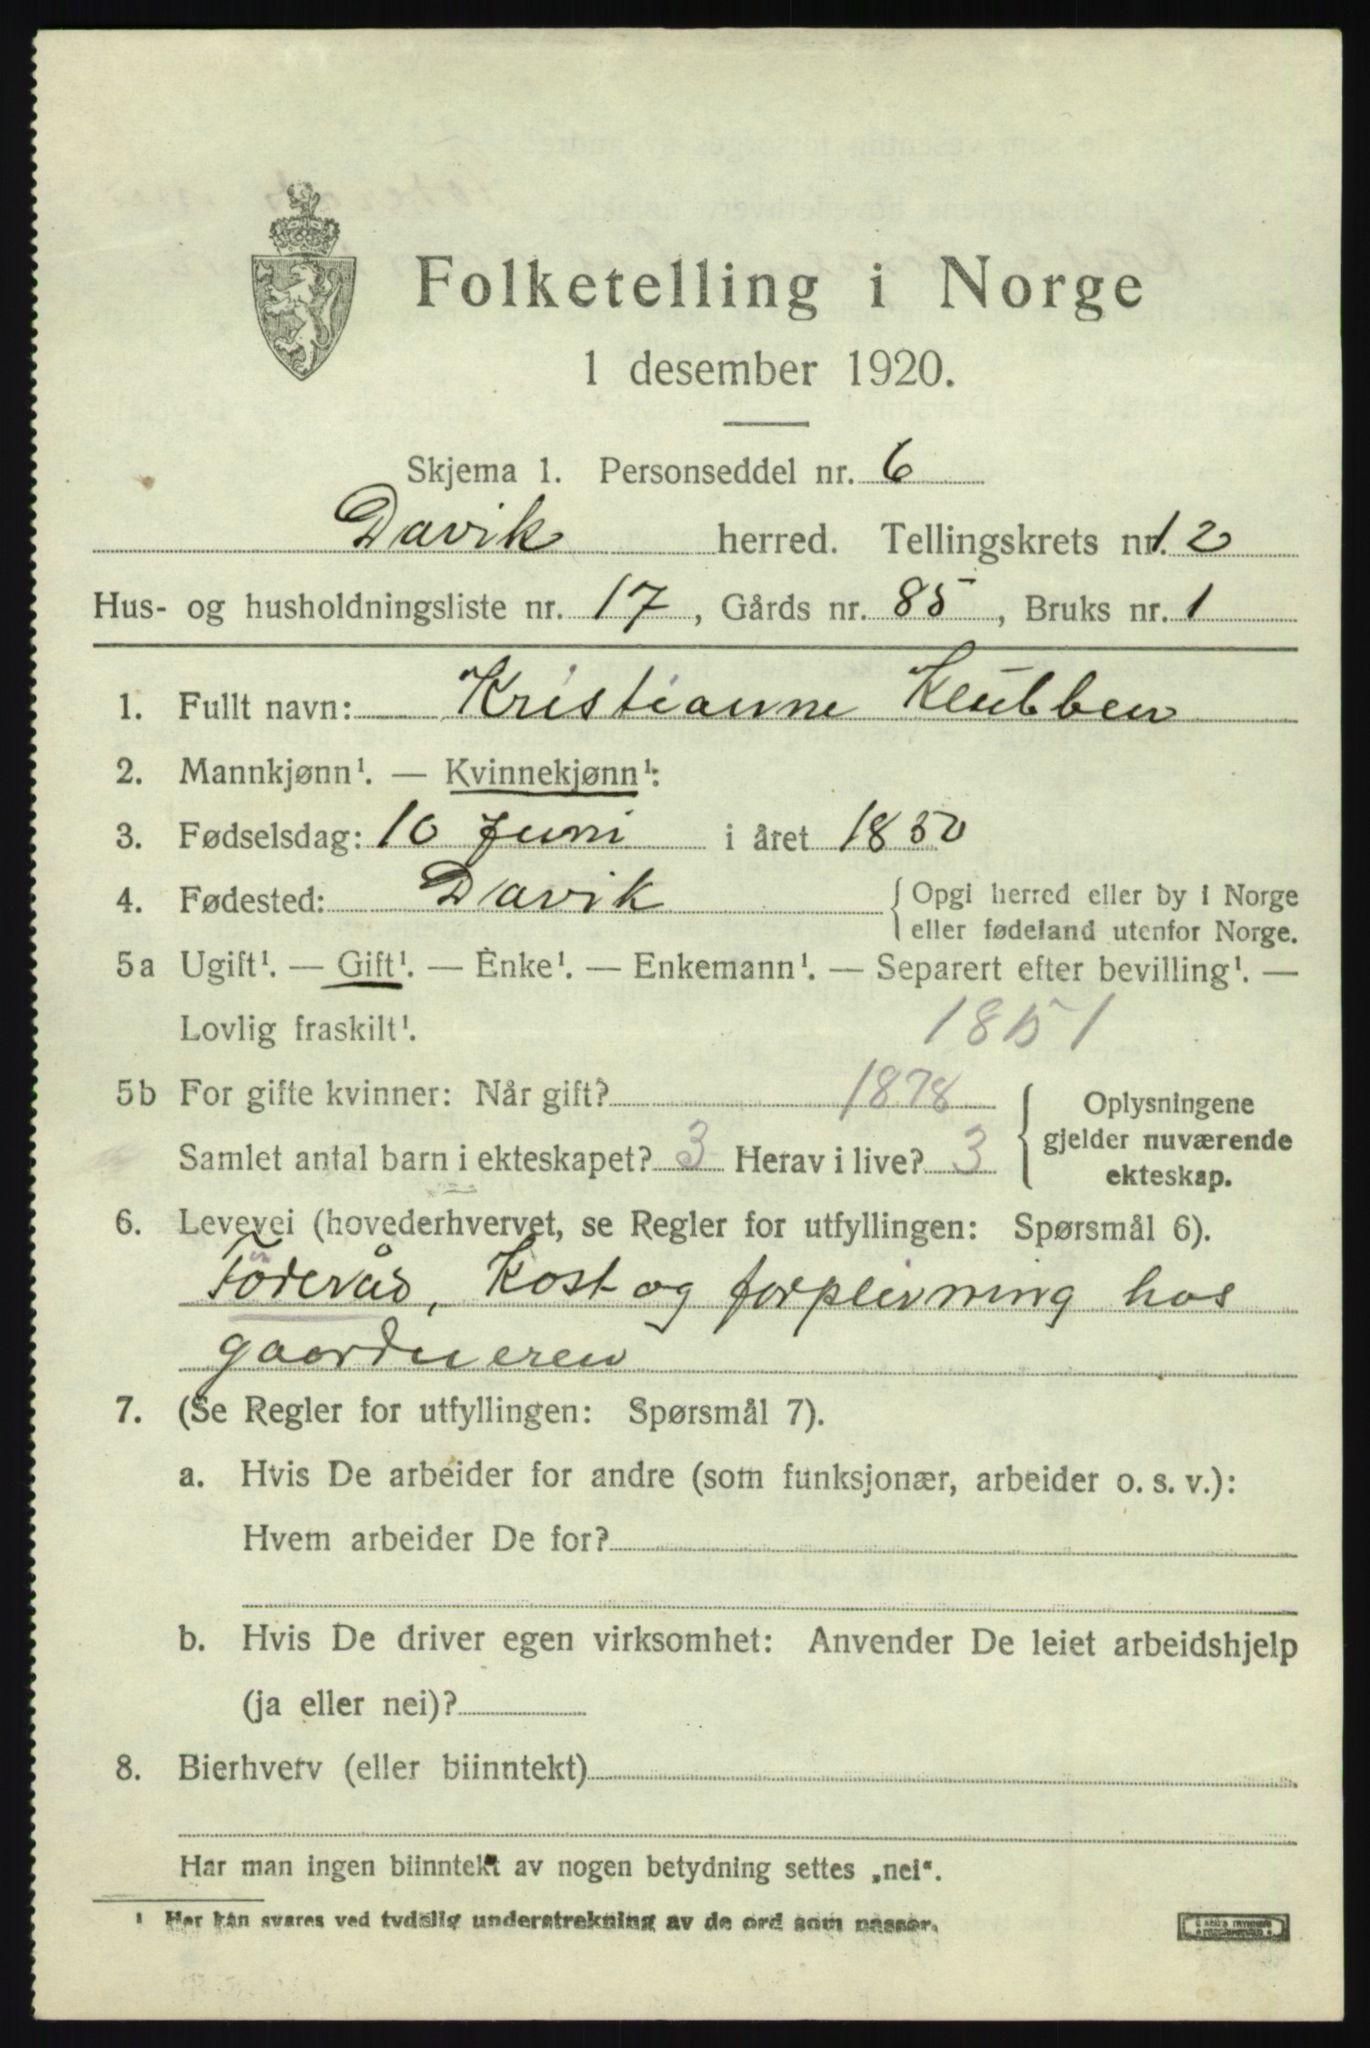 Folketelling i Norge
1 desember 1920.
Skjema 1. Personseddel nr. 6
Davik herred. Tellingskrets nr. 12
Hus- og husholdningsliste nr. 17, Gårds nr. 85, Bruks nr. 1
1. Fullt navn: Kristianne Klubben
2. Mannkjønn¹. — Kvinnekjønn¹:
3. Fødselsdag: 10 Juni i året 1850
4. Fødested: Davik { Opgi herred eller by i Norge
eller fødeland utenfor Norge.
5a Ugift¹. — Gift¹. — Enke¹. — Enkemann¹. — Separert efter bevilling¹. —
Lovlig fraskilt¹. 1851
5b For gifte kvinner: Når gift? 1878
Samlet antal barn i ekteskapet? 3 Herav i live? 3
{ Oplysningene
gjelder nuværende
ekteskap.
6. Levevei (hovederhvervet, se Regler for utfyllingen: Spørsmål 6).
Föderåd, Kost og forpleivning hos
7. (Se Regler for utfyllingen: Spørsmål 7).
a. Hvis De arbeider for andre (som funksjonær, arbeider o. s. v.):
Hvem arbeider De for?
b. Hvis De driver egen virksomhet: Anvender De leiet arbeidshjelp
(ja eller nei)?
8. Bierhverv (eller biinntekt)
Har man ingen biinntekt av nogen betydning settes „nei“.
¹ Her kan svares ved tydelig understrekning av de ord som passer.